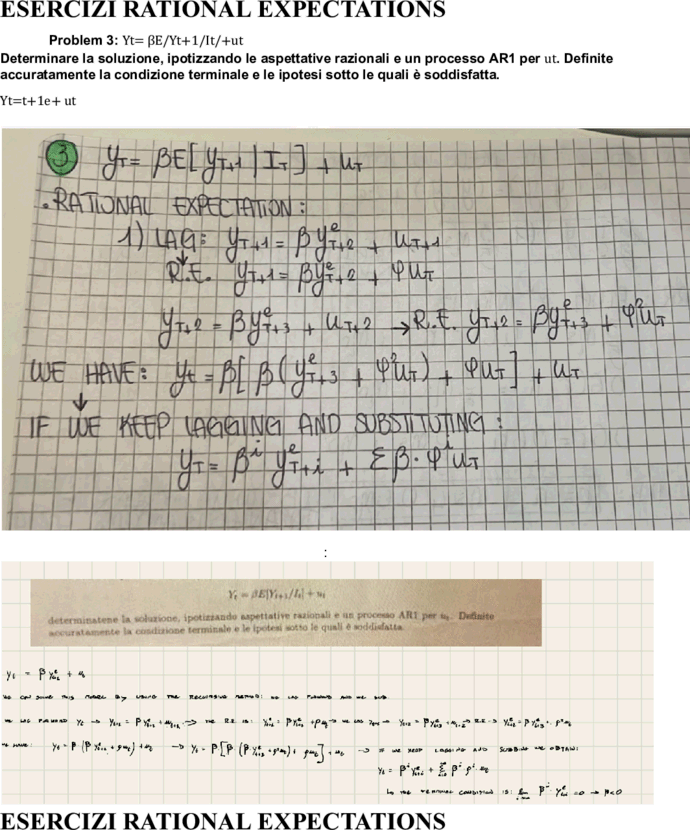 ESERCIZI RATIONAL EXPECTATIONS
Problem 3: Yt= βE/Yt+1/It/+ut
Determinare la soluzione, ipotizzando le aspettative razionali e un processo AR1 per ut. Definite
accuratamente la condizione terminale e le ipotesi sotto le quali è soddisfatta.
Yt=t+1e+ ut
③ y_T = βE[y_{T+1} | I_T] + u_T
. RATIONAL EXPECTATION:
1) LAG: y_{T+1} = β y^e_{T+2} + u_{T+1}
↓
R.E. y_{T+1} = β y^e_{T+2} + φ u_T
y_{T+2} = β y^e_{T+3} + u_{T+2} → R.E. y_{T+2} = β y^e_{T+3} + φ² u_T
WE HAVE: y_t = β[ β( y^e_{T+3} + φ² u_T ) + φ u_T ] + u_T
↓
IF WE KEEP LAGGING AND SUBSTITUTING :
y_T = β^i y^e_{T+i} + Σ β · φ^i u_T
:
Y_t = βE[Y_{t+1}/I_t] + u_t
determinatene la soluzione, ipotizzando aspettative razionali e un processo AR1 per u_t. Definite
accuratamente la condizione terminale e le ipotesi sotto le quali è soddisfatta.
WE CAN SOLVE THIS MODEL BY USING THE RECURSIVE METHOD: WE LAG FORWARD AND WE SUB.
WE LAG FORWARD
THE R.E. IS:
WE HAVE:
→ IF WE KEEP LAGGING AND SUBBING WE OBTAIN:
y_t = β^i y^e_{t+i} + Σ β^i ρ^i u_t
↳ THE TERMINAL CONDITION IS: lim β^i y^e_{t+i} = 0 → β<0
ESERCIZI RATIONAL EXPECTATIONS